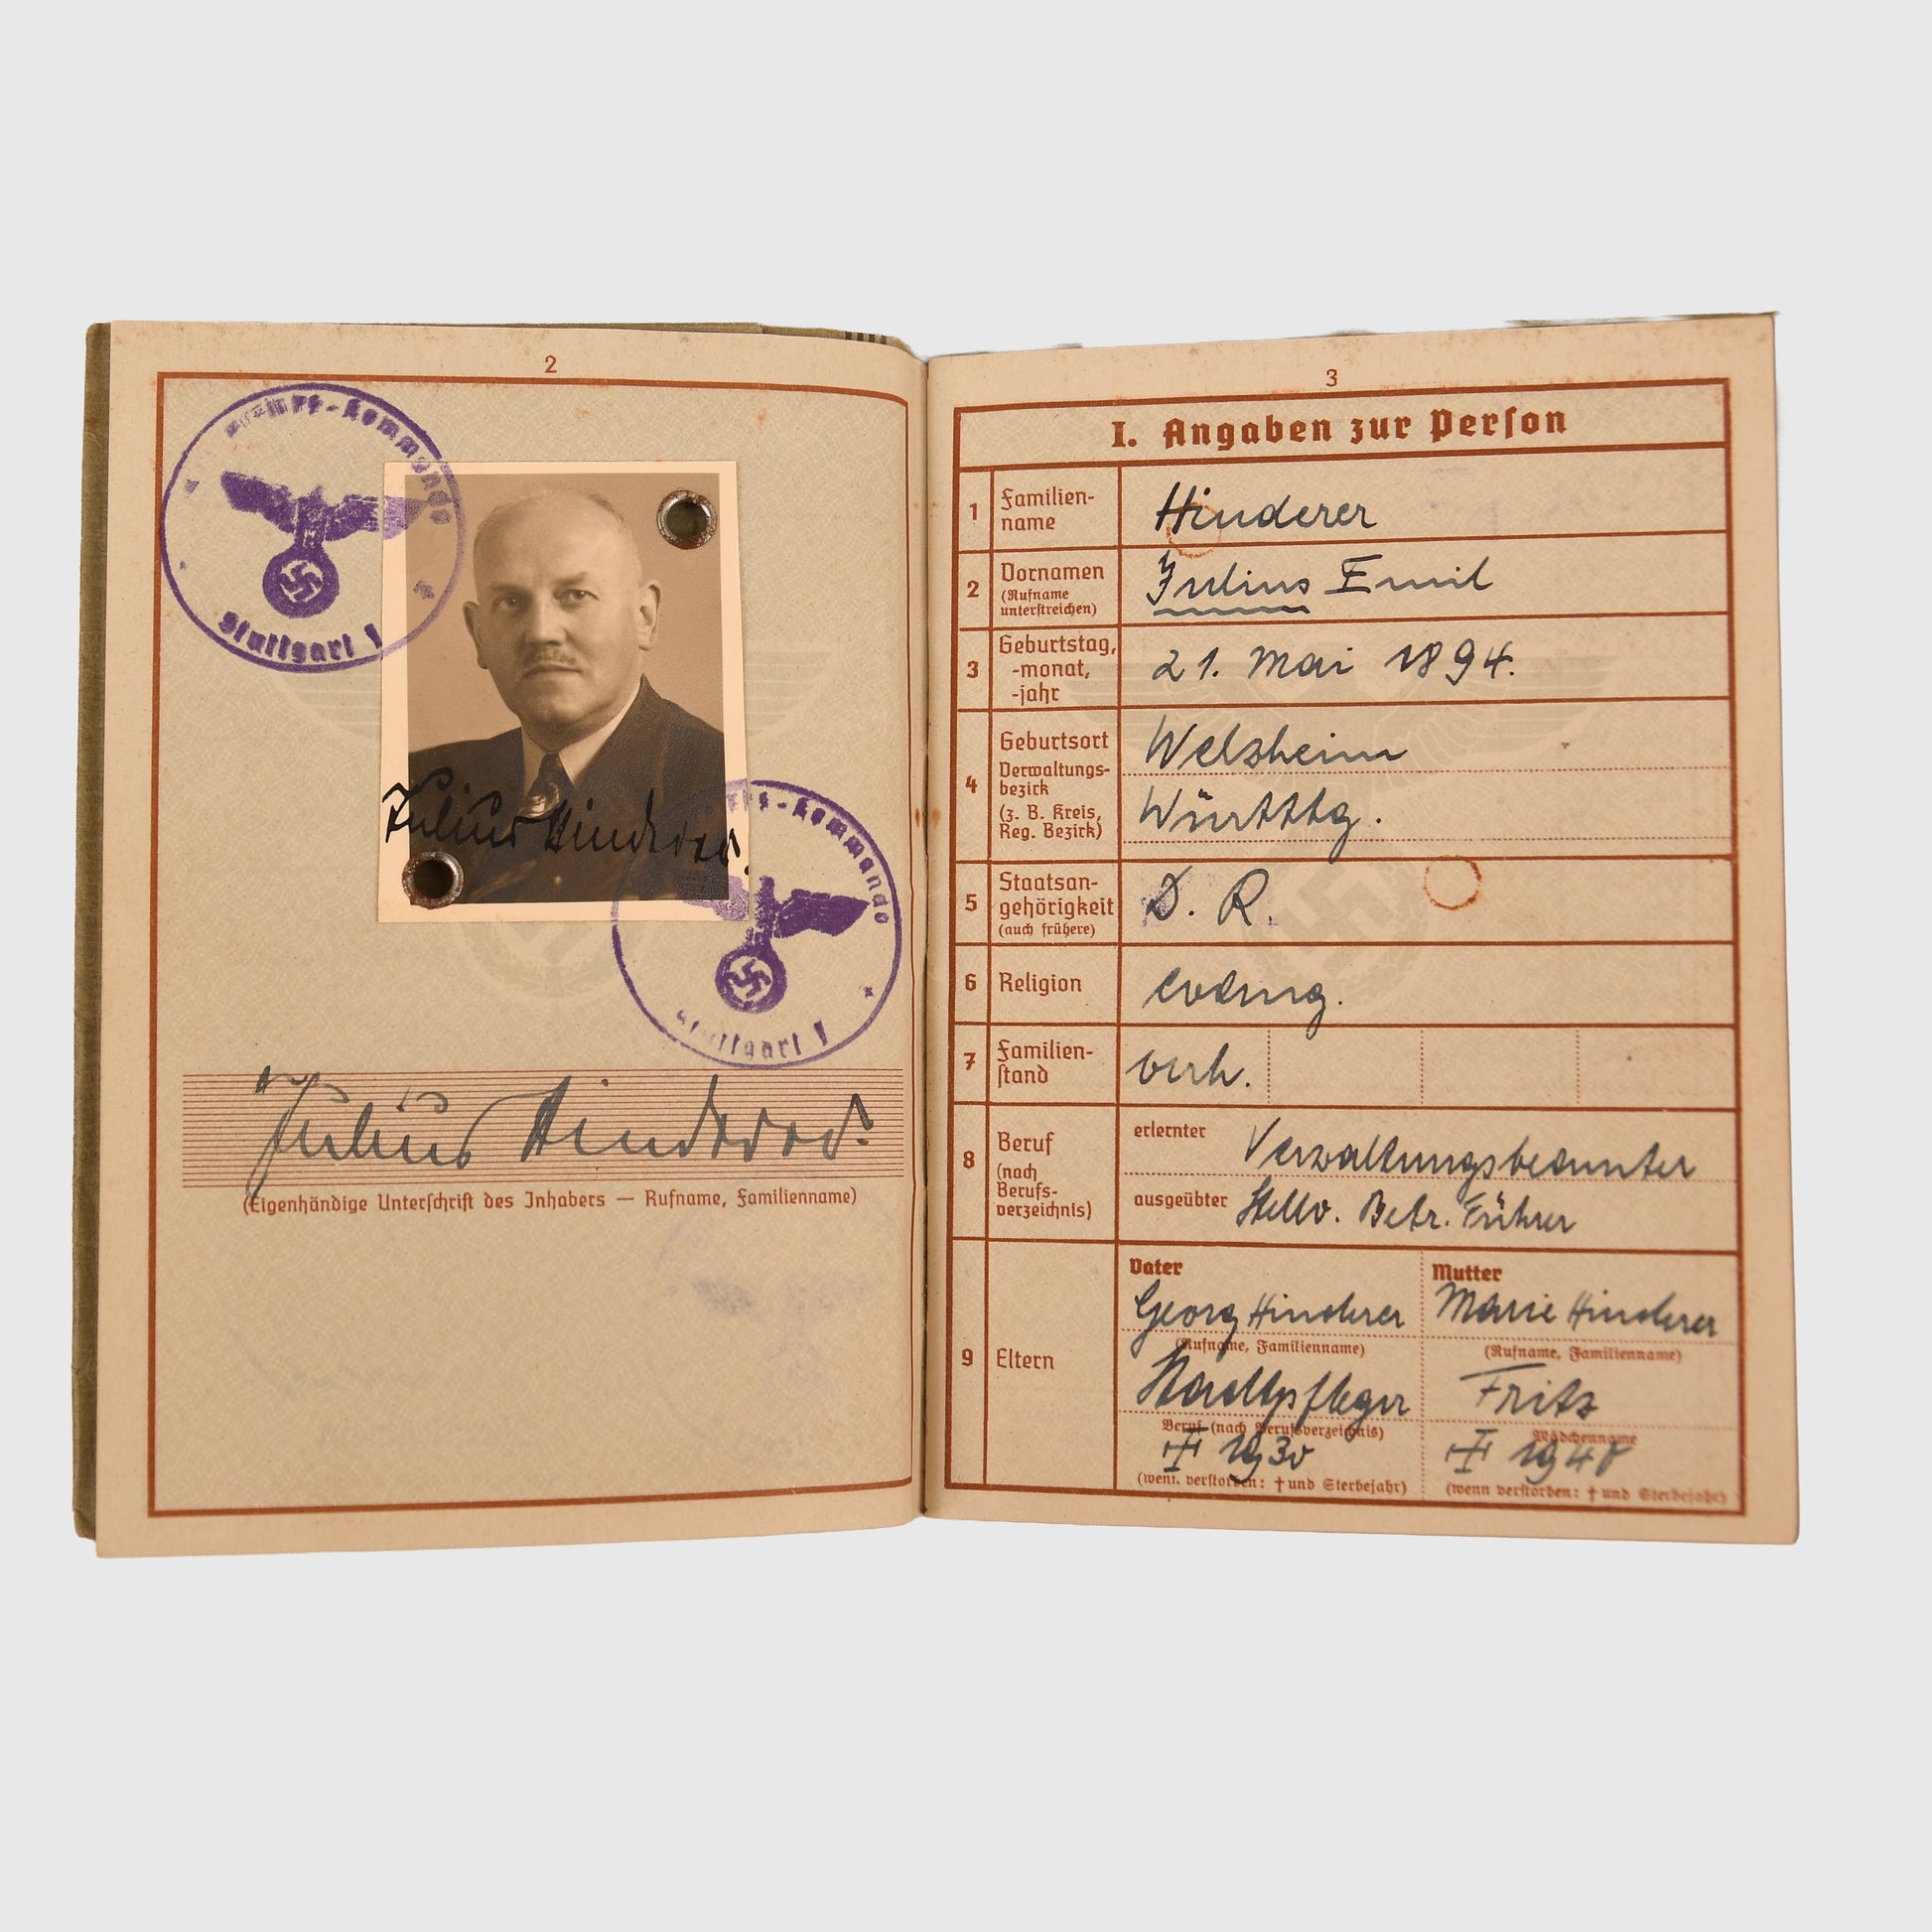 2
-Kommando
Stuttgart I
Julius Hinderer.
-Kommando
Stuttgart I
Julius Hinderer.
(Eigenhändige Unterſchrift des Inhabers — Rufname, Familienname)
3
I. Angaben zur Perſon
1 Familien-
name
Hinderer
2 Vornamen
(Rufname
unterſtreichen)
Julius Emil
3 Geburtstag,
-monat,
-jahr
21. Mai 1894.
4 Geburtsort
Verwaltungs-
bezirk
(z. B. Kreis,
Reg. Bezirk)
Welzheim
Württbg.
5 Staatsan-
gehörigkeit
(auch frühere)
D. R.
6 Religion
evang.
7 Familien-
ſtand
verh.
8 Beruf
(nach
Berufs-
verzeichnis)
erlernter Verwaltungsbeamter
ausgeübter Stellv. Betr. Führer
9 Eltern
Vater
Georg Hinderer
(Rufname, Familienname)
Stadtpfleger
Beruf (nach Berufsverzeichnis)
† 1930
(wenn verſtorben: † und Sterbejahr)
Mutter
Marie Hinderer
(Rufname, Familienname)
Fritz
Mädchenname
(wenn verſtorben: † und Sterbejahr)